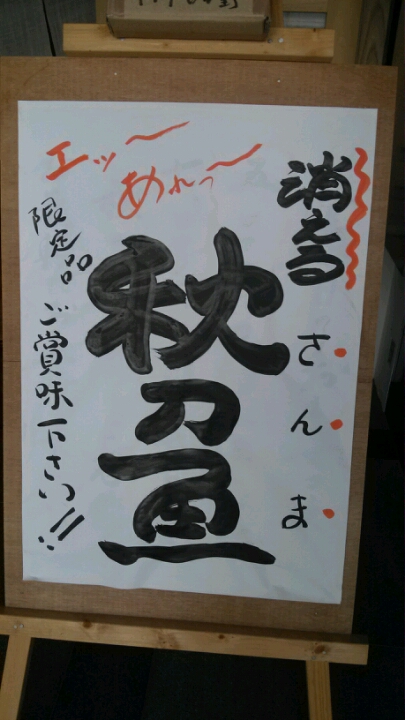 消える
さんま
秋刀魚
エッ〜
あれっ〜
限定品
ご賞味下さい!!